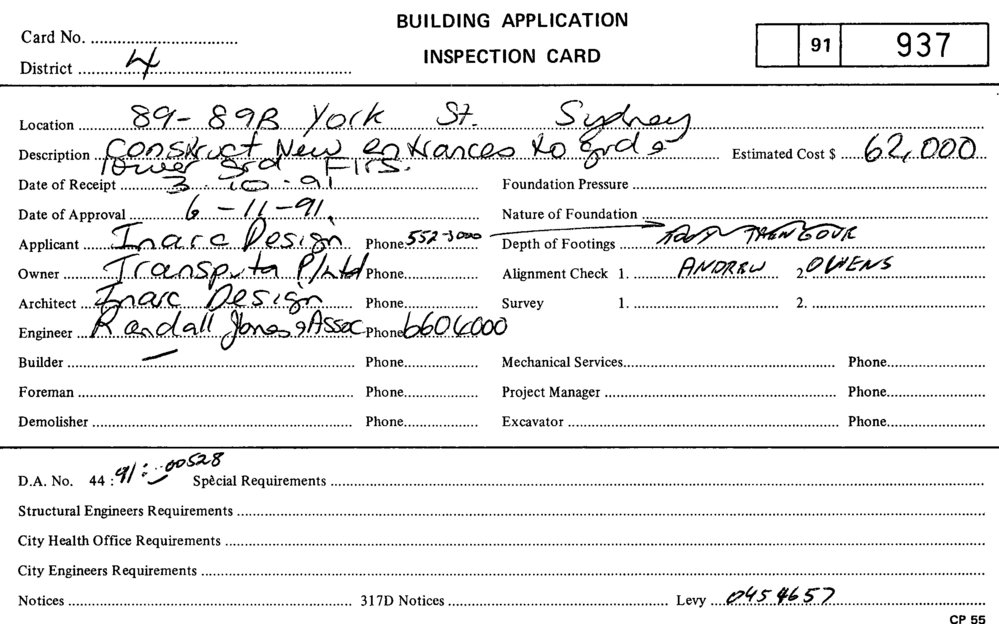 BUILDING APPLICATION
INSPECTION CARD
Card No.
District 4
91 937
Location 89-89B York St. Sydney
Description Construct New entrances to grd &
lower grd Flrs.
Estimated Cost $ 62,000
Date of Receipt 3.10.91 Foundation Pressure
Date of Approval 6-11-91. Nature of Foundation
Applicant Inarc Design Phone 552-3000 Depth of Footings
Owner Transputa P/Ltd Phone Alignment Check 1. ANDREW 2. OWENS
Architect Inarc Design Phone Survey 1. 2.
Engineer Randall Jones & Assoc Phone 6606000
Builder — Phone Mechanical Services Phone
Foreman Phone Project Manager Phone
Demolisher Phone Excavator Phone
D.A. No. 44:91:00528 Special Requirements
Structural Engineers Requirements
City Health Office Requirements
City Engineers Requirements
Notices 317D Notices Levy 0454657
CP 55